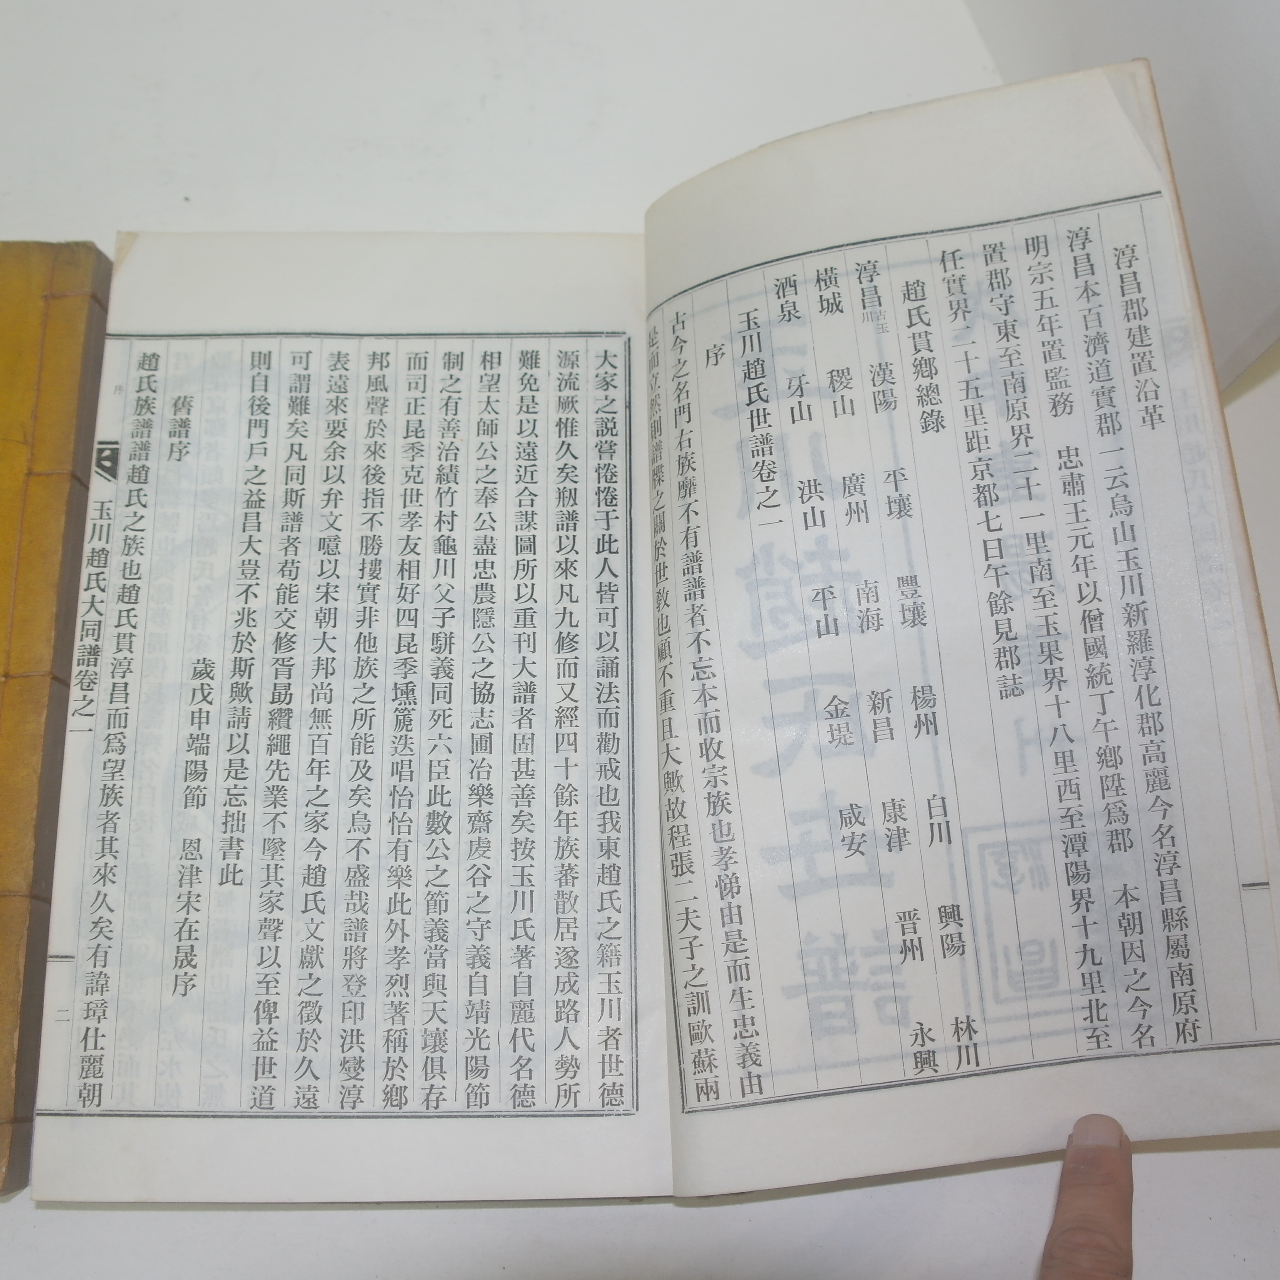 淳昌郡建置沿革
淳昌本百濟道實郡一云烏山玉川新羅淳化郡高麗今名淳昌縣屬南原府
明宗五年置監務 忠肅王元年以僧國統丁午鄉陞爲郡 本朝因之今名
置郡守東至南原界二十一里南至玉果界十八里西至潭陽界十九里北至
任實界二十五里距京都七日午餘見郡誌
趙氏貫鄉總錄
淳昌古玉川 漢陽 平壤 豐壤 楊州 白川 興陽 林川
橫城 稷山 廣州 南海 新昌 康津 晋州 永興
酒泉 牙山 洪山 平山 金堤 咸安
玉川趙氏世譜卷之一
序
古今之名門右族靡不有譜譜者不忘本而收宗族也孝悌由是而生忠義由
是而立然則譜牒之關於世敎也顧不重且大歟故程張二夫子之訓歐蘇兩
大家之說甞惓惓于此人皆可以誦法而勸戒也我東趙氏之籍玉川者世德
源流厥惟久矣剏譜以來凡九修而又經四十餘年族蕃散居遂成路人勢所
難免是以遠近合謀圖所以重刊大譜者固甚善矣按玉川氏著自麗代名德
相望太師公之奉公盡忠農隱公之協志圃冶樂齋虔谷之守義自靖光陽節
制之有善治績竹村龜川父子駢義同死六臣此數公之節義當與天壤俱存
而司正昆季克世孝友相好四昆季壎篪迭唱怡怡有樂此外孝烈著稱於鄉
邦風聲於來後指不勝摟實非他族之所能及矣烏不盛哉譜將登印洪燮淳
表遠來要余以弁文噫以宋朝大邦尚無百年之家今趙氏文獻之徵於久遠
可謂難矣凡同斯譜者苟能交修胥勗纘繩先業不墜其家聲以至俾益世道
則自後門戶之益昌大豈不兆於斯歟請以是忘拙書此
歲戊申端陽節 恩津宋在晟序
舊譜序
趙氏族譜譜趙氏之族也趙氏貫淳昌而爲望族者其來久矣有諱璋仕麗朝
玉川趙氏大同譜卷之一
序
二